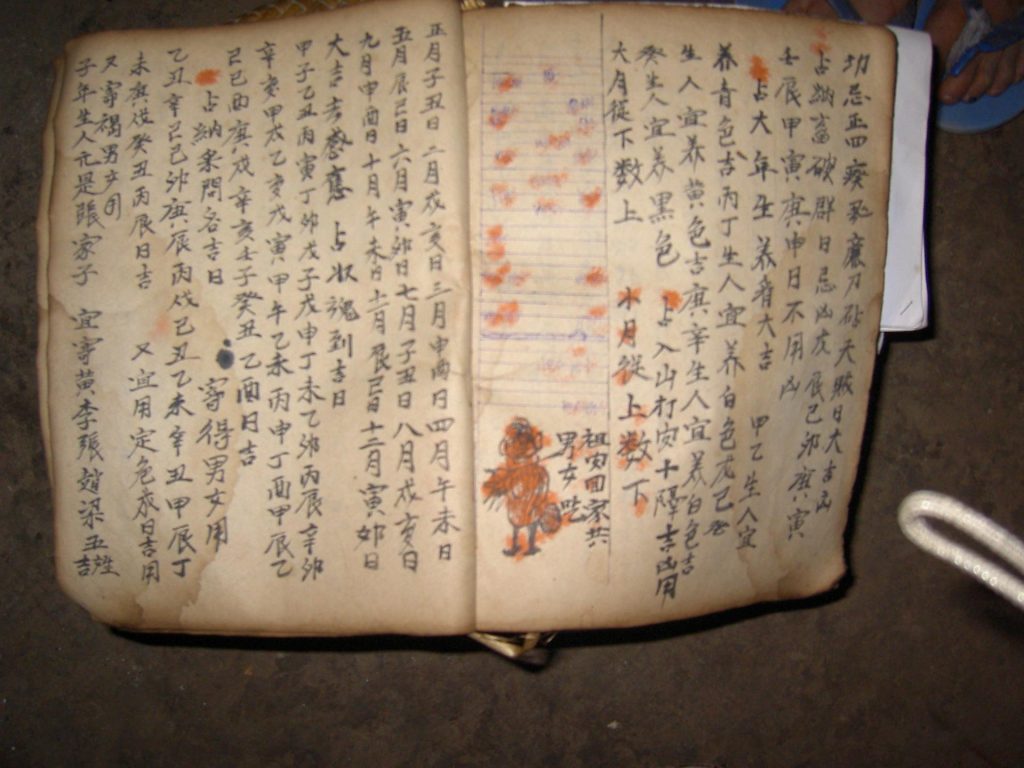 切忌正四癸
占納畜破群日忌凶
辰巳卯庚寅
壬辰甲寅庚申日不用凶
占大年生养着大吉
甲乙生人宜
养青色吉丙丁生人宜养白色戊己
生人宜养黄色吉庚辛生人宜养白色吉
癸生人宜养黑色
占入山打肉十隔吉凶用
大月從下数上
小月從上数下
祖肉回家共
男女吃
正月子丑日二月戍亥日三月申酉日四月午未日
五月辰巳日六月寅卯日七月子丑日八月戍亥日
九月申酉日十月午未日十一月辰巳日十二月寅卯日
大吉
占收魂到吉日
甲子乙丑丙寅丁卯戊子戊申丁未乙卯丙辰辛卯
辛亥甲戌乙亥戊寅甲午乙未丙申丁酉甲辰乙
己巳酉庚戌辛亥壬子癸丑乙酉日吉
占納來問各吉日
寄得男女用
乙丑辛巳己卯庚辰丙戌己丑乙未辛丑甲辰丁
未庚戌癸丑丙辰日吉
又宜用定危成日吉用
又寄禍男女用
子年生人元是張家子
宜寄黄李張趙梁五姓吉